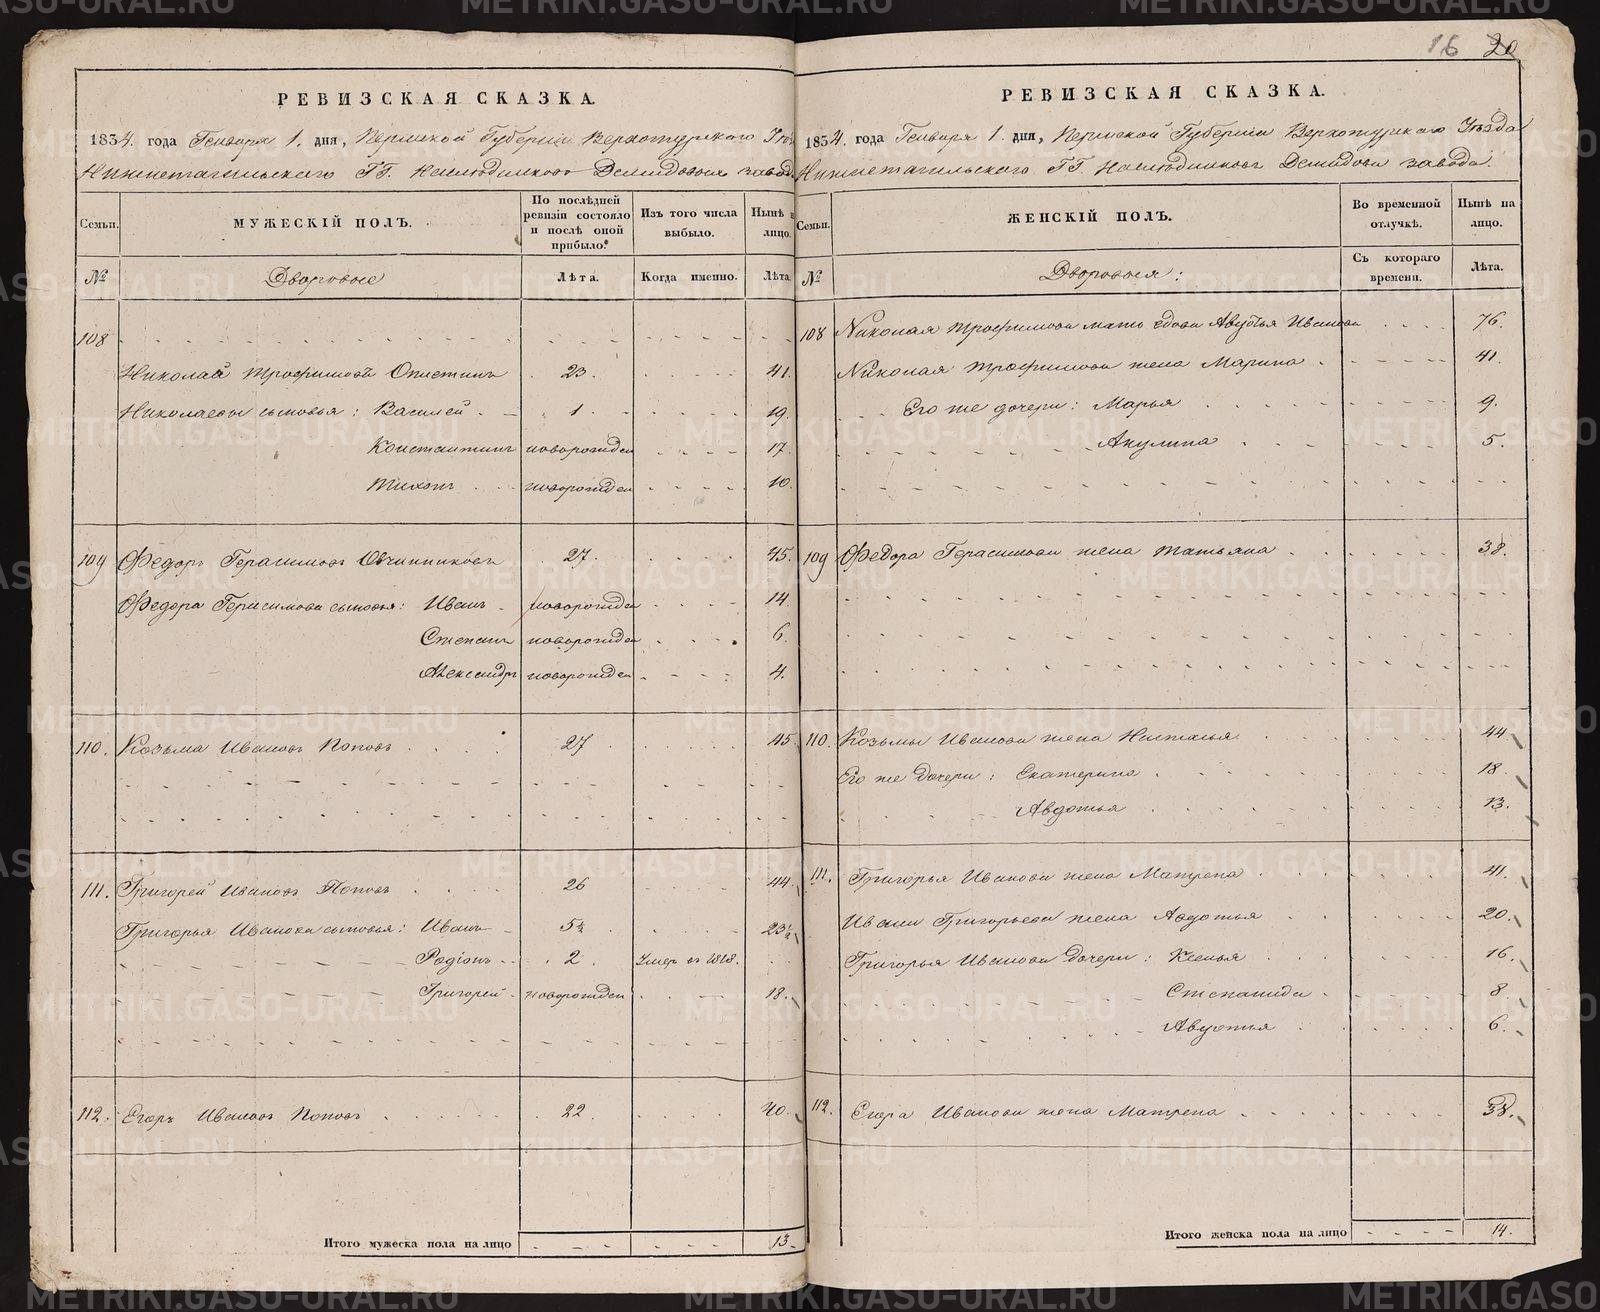 16 20
РЕВИЗСКАЯ СКАЗКА.
1834. года Генваря 1. дня, Пермской Губернiи Верхотурскаго Уѣз
Нижнетагильскаго ГГ. Наслѣдниковъ Демидовыхъ завод
Семьи.
МУЖЕСКIЙ ПОЛЪ.
По послѣдней ревизiи состояло и послѣ оной прибыло.
Изъ того числа выбыло.
Нынѣ н лицо.
№ Дворовые Лѣта. Когда именно. Лѣта.
108
Николай Трофимовъ 23. 41.
Николаевы сыновья: Василей 1. 19.
Константинъ новорожден 17.
Тихонъ новорожден 10.
109 Федоръ Герасимовъ Овчинниковъ 27. 45.
Федора Герасимова сыновья: Иванъ новорожден 14.
Степанъ новорожден 6.
Александръ новорожден 4.
110. Козьма Ивановъ Поповъ 27. 45.
111. Григорей Ивановъ Поповъ 26 44.
Григорья Иванова сыновья: Иванъ 5½ 23½
Родiонъ 2. Умеръ въ 1818.
Григорей новорожден 18.
112. Егоръ Ивановъ Поповъ 22. 40.
Итого мужеска пола на лицо 13.
РЕВИЗСКАЯ СКАЗКА.
1834. года Генваря 1. дня, Пермской Губернiи Верхотурскаго Уѣзда
Нижнетагильскаго ГГ. Наслѣдниковъ Демидовы завода.
Семьи.
ЖЕНСКIЙ ПОЛЪ.
Во временной отлучкѣ.
Нынѣ на лицо.
№ Дворовыя: Съ котораго времени. Лѣта.
108 Николая Трофимова мать вдова Авдотья Иванова 76.
Николая Трофимова жена Марина 41.
Его же дочери: Марья 9.
Акулина 5.
109 Федора Герасимова жена Татьяна 38.
110. Козьмы Иванова жена Наталья 44.
Его же дочери: Екатерина 18.
Авдотья 13.
111. Григорья Иванова жена Матрена 41.
Ивана Григорьева жена Авдотья 20.
Григорья Иванова дочери: Ксенья 16.
Степанида 8.
Авдотья 6.
112. Егора Иванова жена Матрена 38.
Итого женска пола на лицо 14.
METRIKI.GASO-URAL.RU